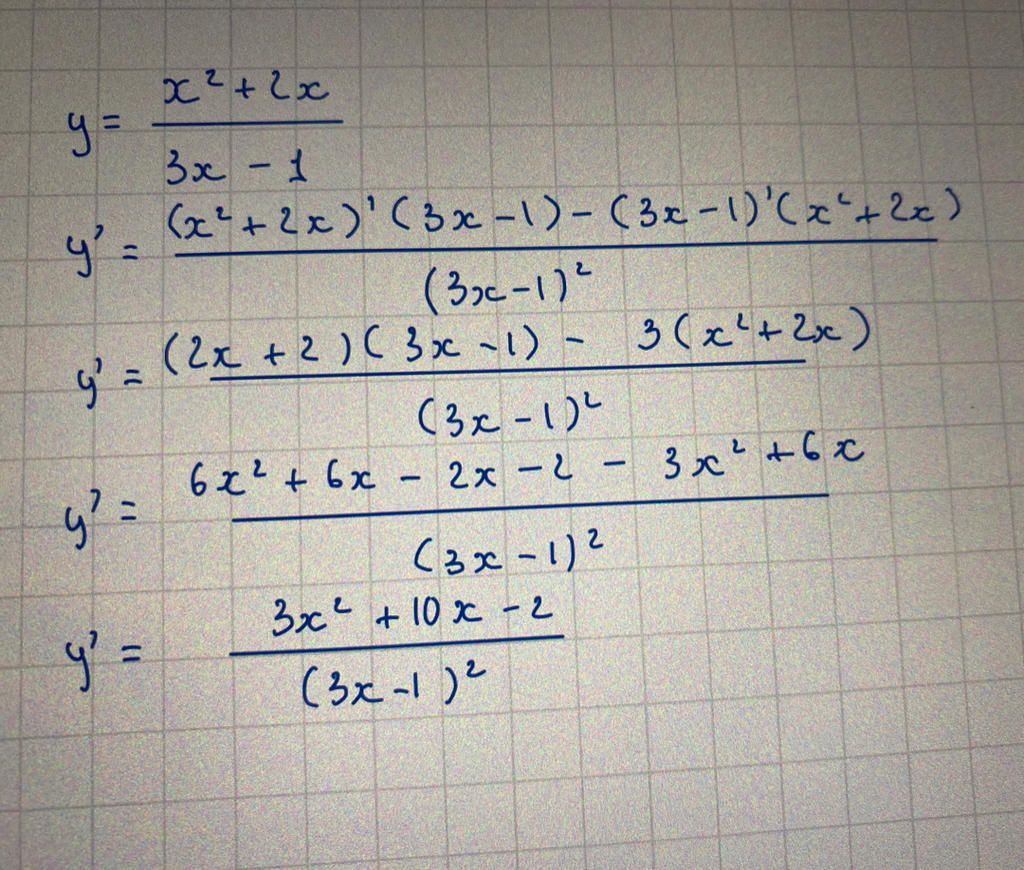 y = (x² + 2x) / (3x - 1)
y' = ((x² + 2x)' (3x - 1) - (3x - 1)' (x² + 2x)) / (3x - 1)²
y' = ((2x + 2)(3x - 1) - 3(x² + 2x)) / (3x - 1)²
y' = (6x² + 6x - 2x - 2 - 3x² + 6x) / (3x - 1)²
y' = (3x² + 10x - 2) / (3x - 1)²